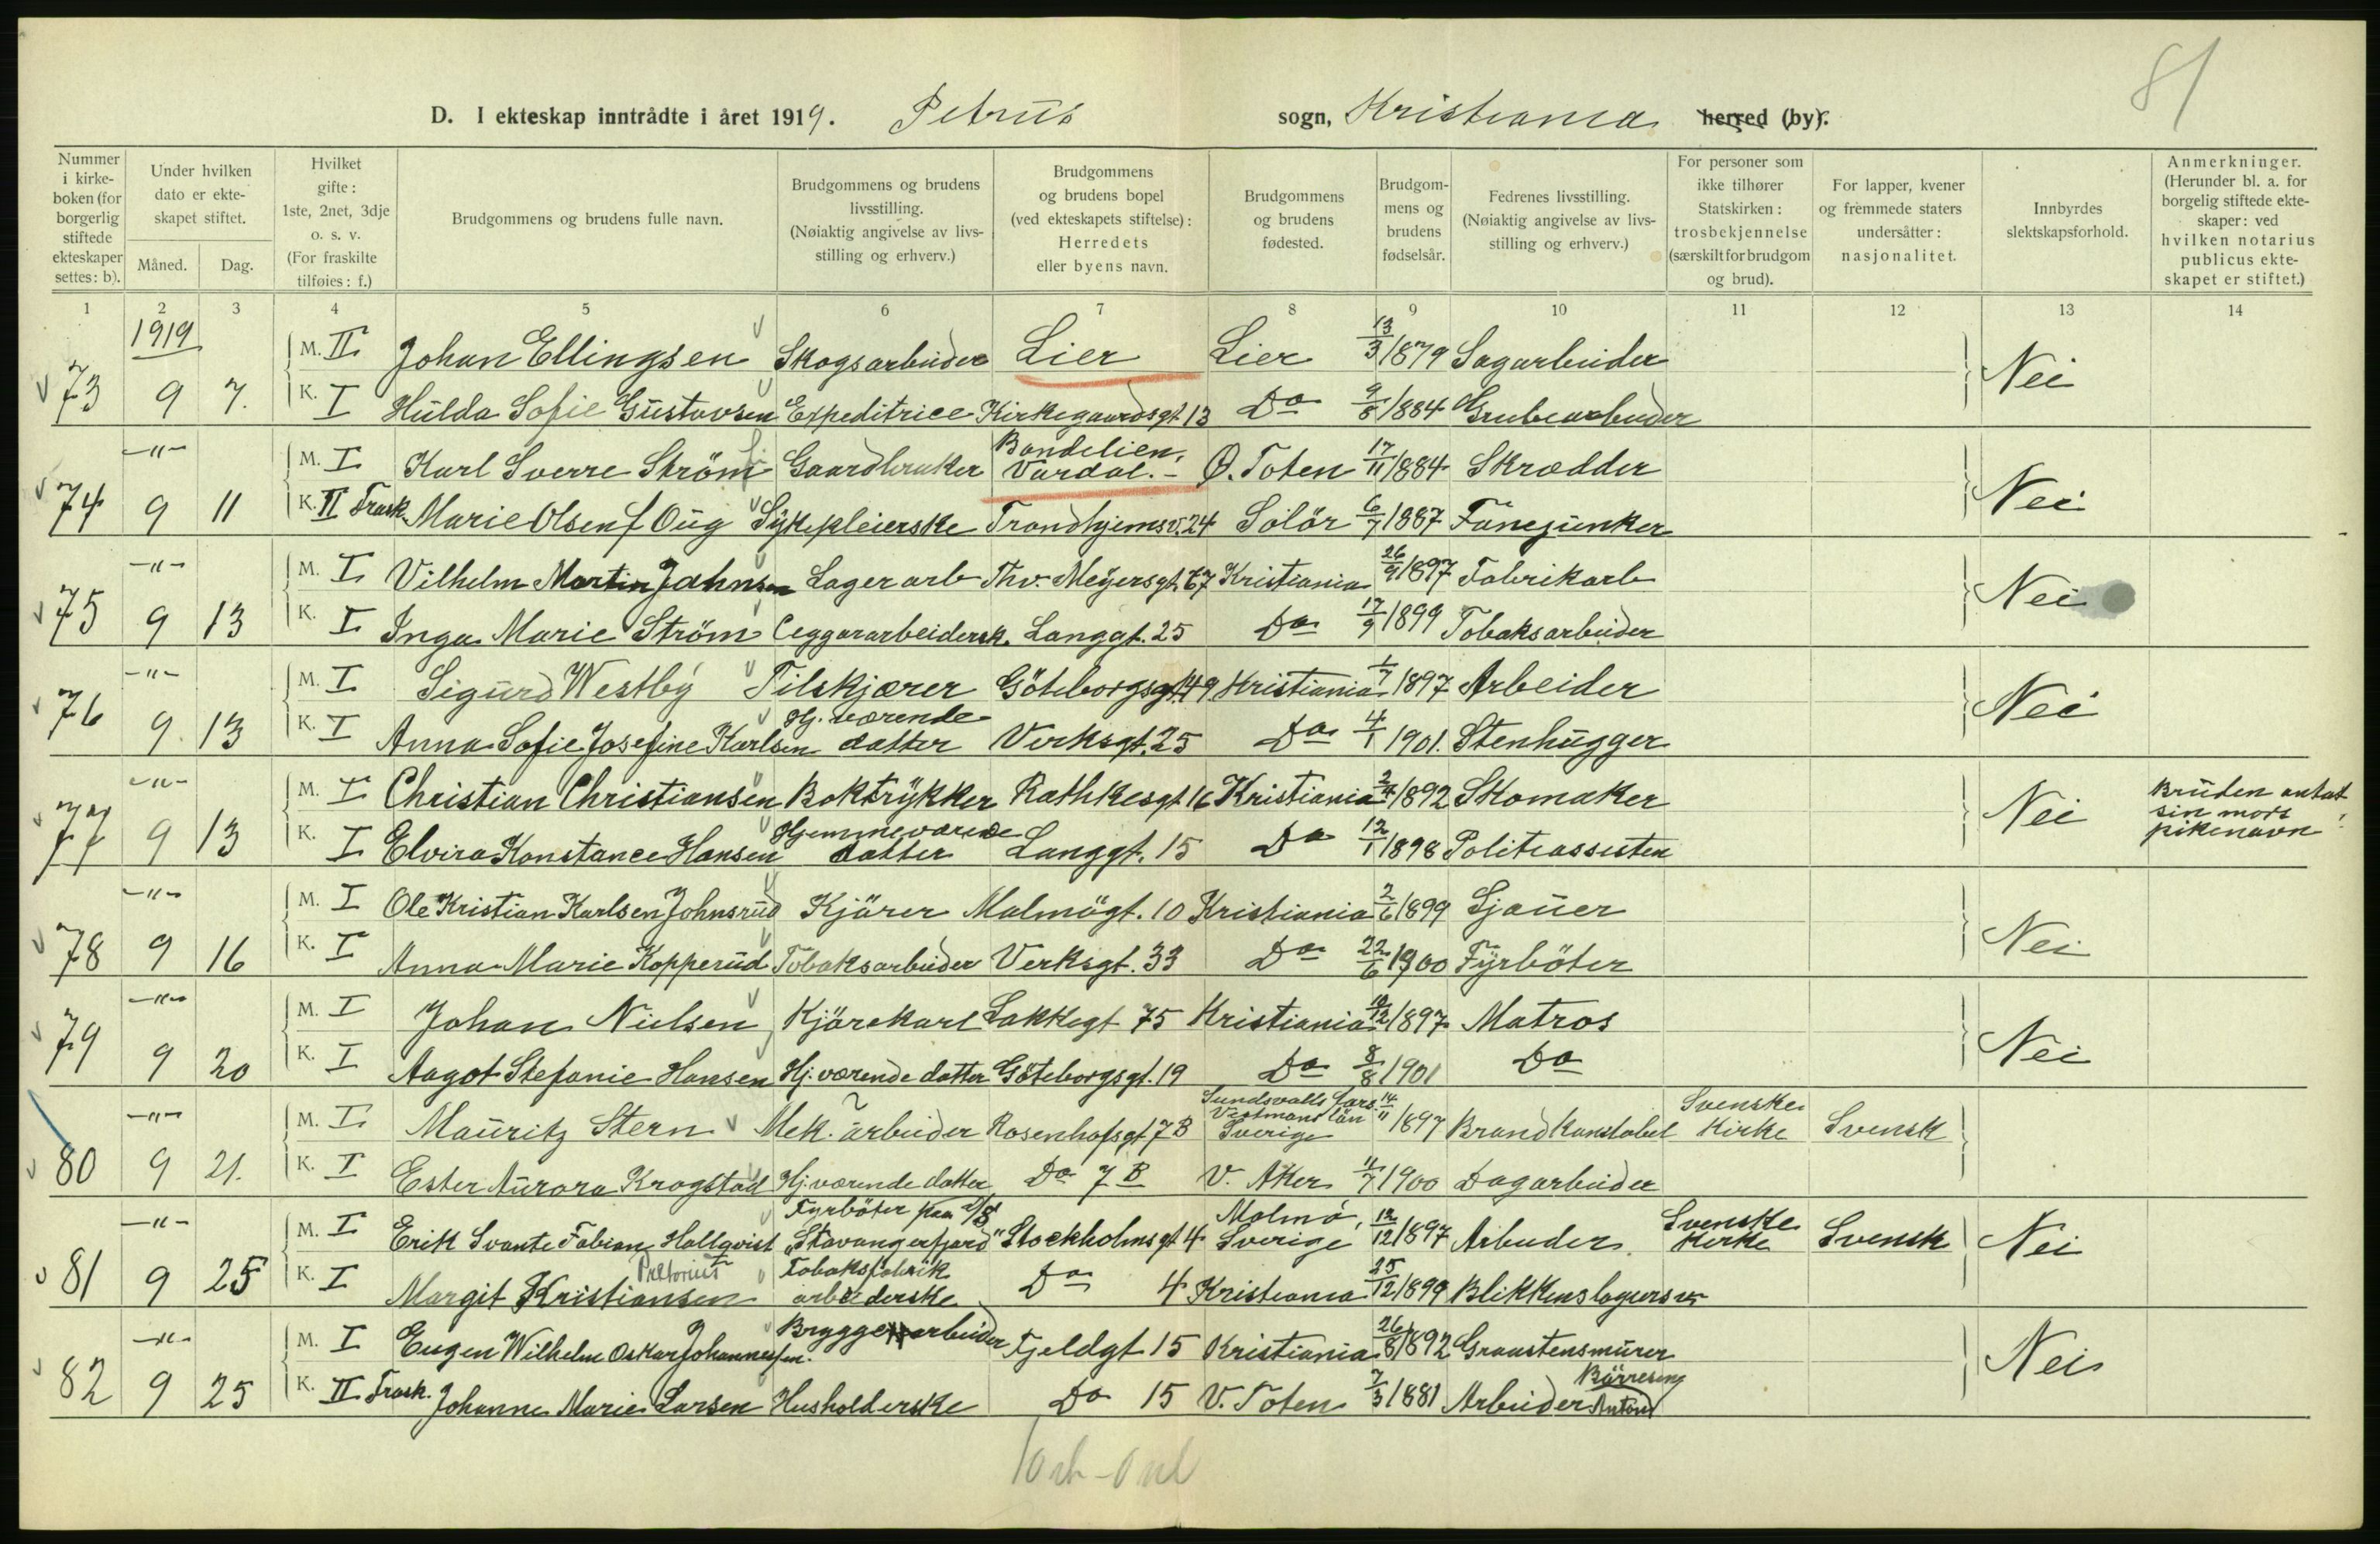 81
D. I ekteskap inntrådte i året 1919. Petrus sogn, Kristiania herred (by).
Nummer i kirkeboken (for borgerlig stiftede ekteskaper settes: b).
Under hvilken dato er ekteskapet stiftet.
Måned. Dag.
Hvilket gifte: 1ste, 2net, 3dje o. s. v. (For fraskilte tilføies: f.)
Brudgommens og brudens fulle navn.
Brudgommens og brudens livsstilling. (Nøiaktig angivelse av livsstilling og erhverv.)
Brudgommens og brudens bopel (ved ekteskapets stiftelse): Herredets eller byens navn.
Brudgommens og brudens fødested.
Brudgommens og brudens fødselsår.
Fedrenes livsstilling. (Nøiaktig angivelse av livsstilling og erhverv.)
For personer som ikke tilhører Statskirken: trosbekjennelse (særskilt for brudgom og brud).
For lapper, kvener og fremmede staters undersåtter: nasjonalitet.
Innbyrdes slektskapsforhold.
Anmerkninger. (Herunder bl. a. for borgelig stiftede ekteskaper: ved hvilken notarius publicus ekteskapet er stiftet.)
1 2 3 4 5 6 7 8 9 10 11 12 13 14
1919
M. II Johan Ellingsen Skogsarbeider Lier Lier 13/3 1879 Sagarbeider
73 9 7. K. I Hulda Sofie Gustavsen Expeditrice Kirkegaardsgt 13 Do 9/8 1884 Grubearbeider Nei
-"- M. I Karl Sverre Ström Gaardbruker Bondelien, Vardal.- Ø. Toten 17/11 1884 Skrædder
74 9 11 K. II Frask. Marie Olsen f Oug Sykepleierske Trondhjemsv. 24 Solör 6/7 1887 Fanejunker Nei
-"- M. I Vilhelm Martin Jahnsen Lagerarb Thv. Meyersgt. 67 Kristiania 26/9 1897 Fabrikarb
75 9 13 K. I Inga Marie Ström Ceggararbeidersk. Langgt. 25 Do 17/9 1899 Tobaksarbeider Nei
-"- M. I Sigurd Westby Tilskjærer Göteborgsgt. 49 Kristiania 1/7 1897 Arbeider
76 9 13 K. I Anna Sofie Josefine Karlsen Hj. værende datter Verksgt. 25 Do 4/1 1901. Stenhugger Nei
-"- M. I Christian Christiansen Boktrykker Rathkesgt 16 Kristiania 2/4 1892 Skomaker
77 9 13 K. I Elvira Konstance Hansen Hjemmeværende datter Langgt. 15 Do 12/1 1898 Politiassisten Nei Bruden antat sin mors pikenavn!
-"- M. I Ole Kristian Karlsen Johnsrud Kjörer Malmögt. 10 Kristiania 2/6 1899 Sjauer
78 9 16 K. I Anna Marie Kopperud Tobaksarbeider Verksgt. 33 Do 22/6 1900 Fyrböter Nei
-"- M. I Johan Nielsen Kjörekarl Lakkegt 75 Kristiania 10/12 1897 Matros
79 9 20 K. I Aagot Stefanie Hansen Hj. værende datter Göteborgsgt. 19 Do 8/8 1901 Do Nei
-"- M. I Mauritz Stern Mek. arbeider Rosenhofsgt 7 B Sverige 14/11 1897 Brandkonstabel Svenske Kirke Svensk
80 9 21. K. I Ester Aurora Krogstad Hj. værende datter Do 7 B V. Aker 11/7 1900 Dagarbeider
-"- M. I Erik Svante Fabian Hallqvist Fyrböter paa D/S "Stavangerfjord" Stockholmsgt 4 Malmö, Sverige 12/12 1897 Arbeider Svenske Kirke Svensk
81 9 25 K. I Margit Kristiansen Pretorius Tobaksfabrik arbeiderske Do 4 Kristiania 25/12 1899 Blikkenslagersv. Nei
-"- M. I Eugen Wilhelm Oskar Johannessen. Bryggearbeider Fjeldgt 15 Kristiania 26/8 1892 Graastensmurer
82 9 25 K. II Frask. Johanne Marie Larsen Husholderske Do 15 V. Toten 7/3 1881 Arbeider Anton Börresen Nei